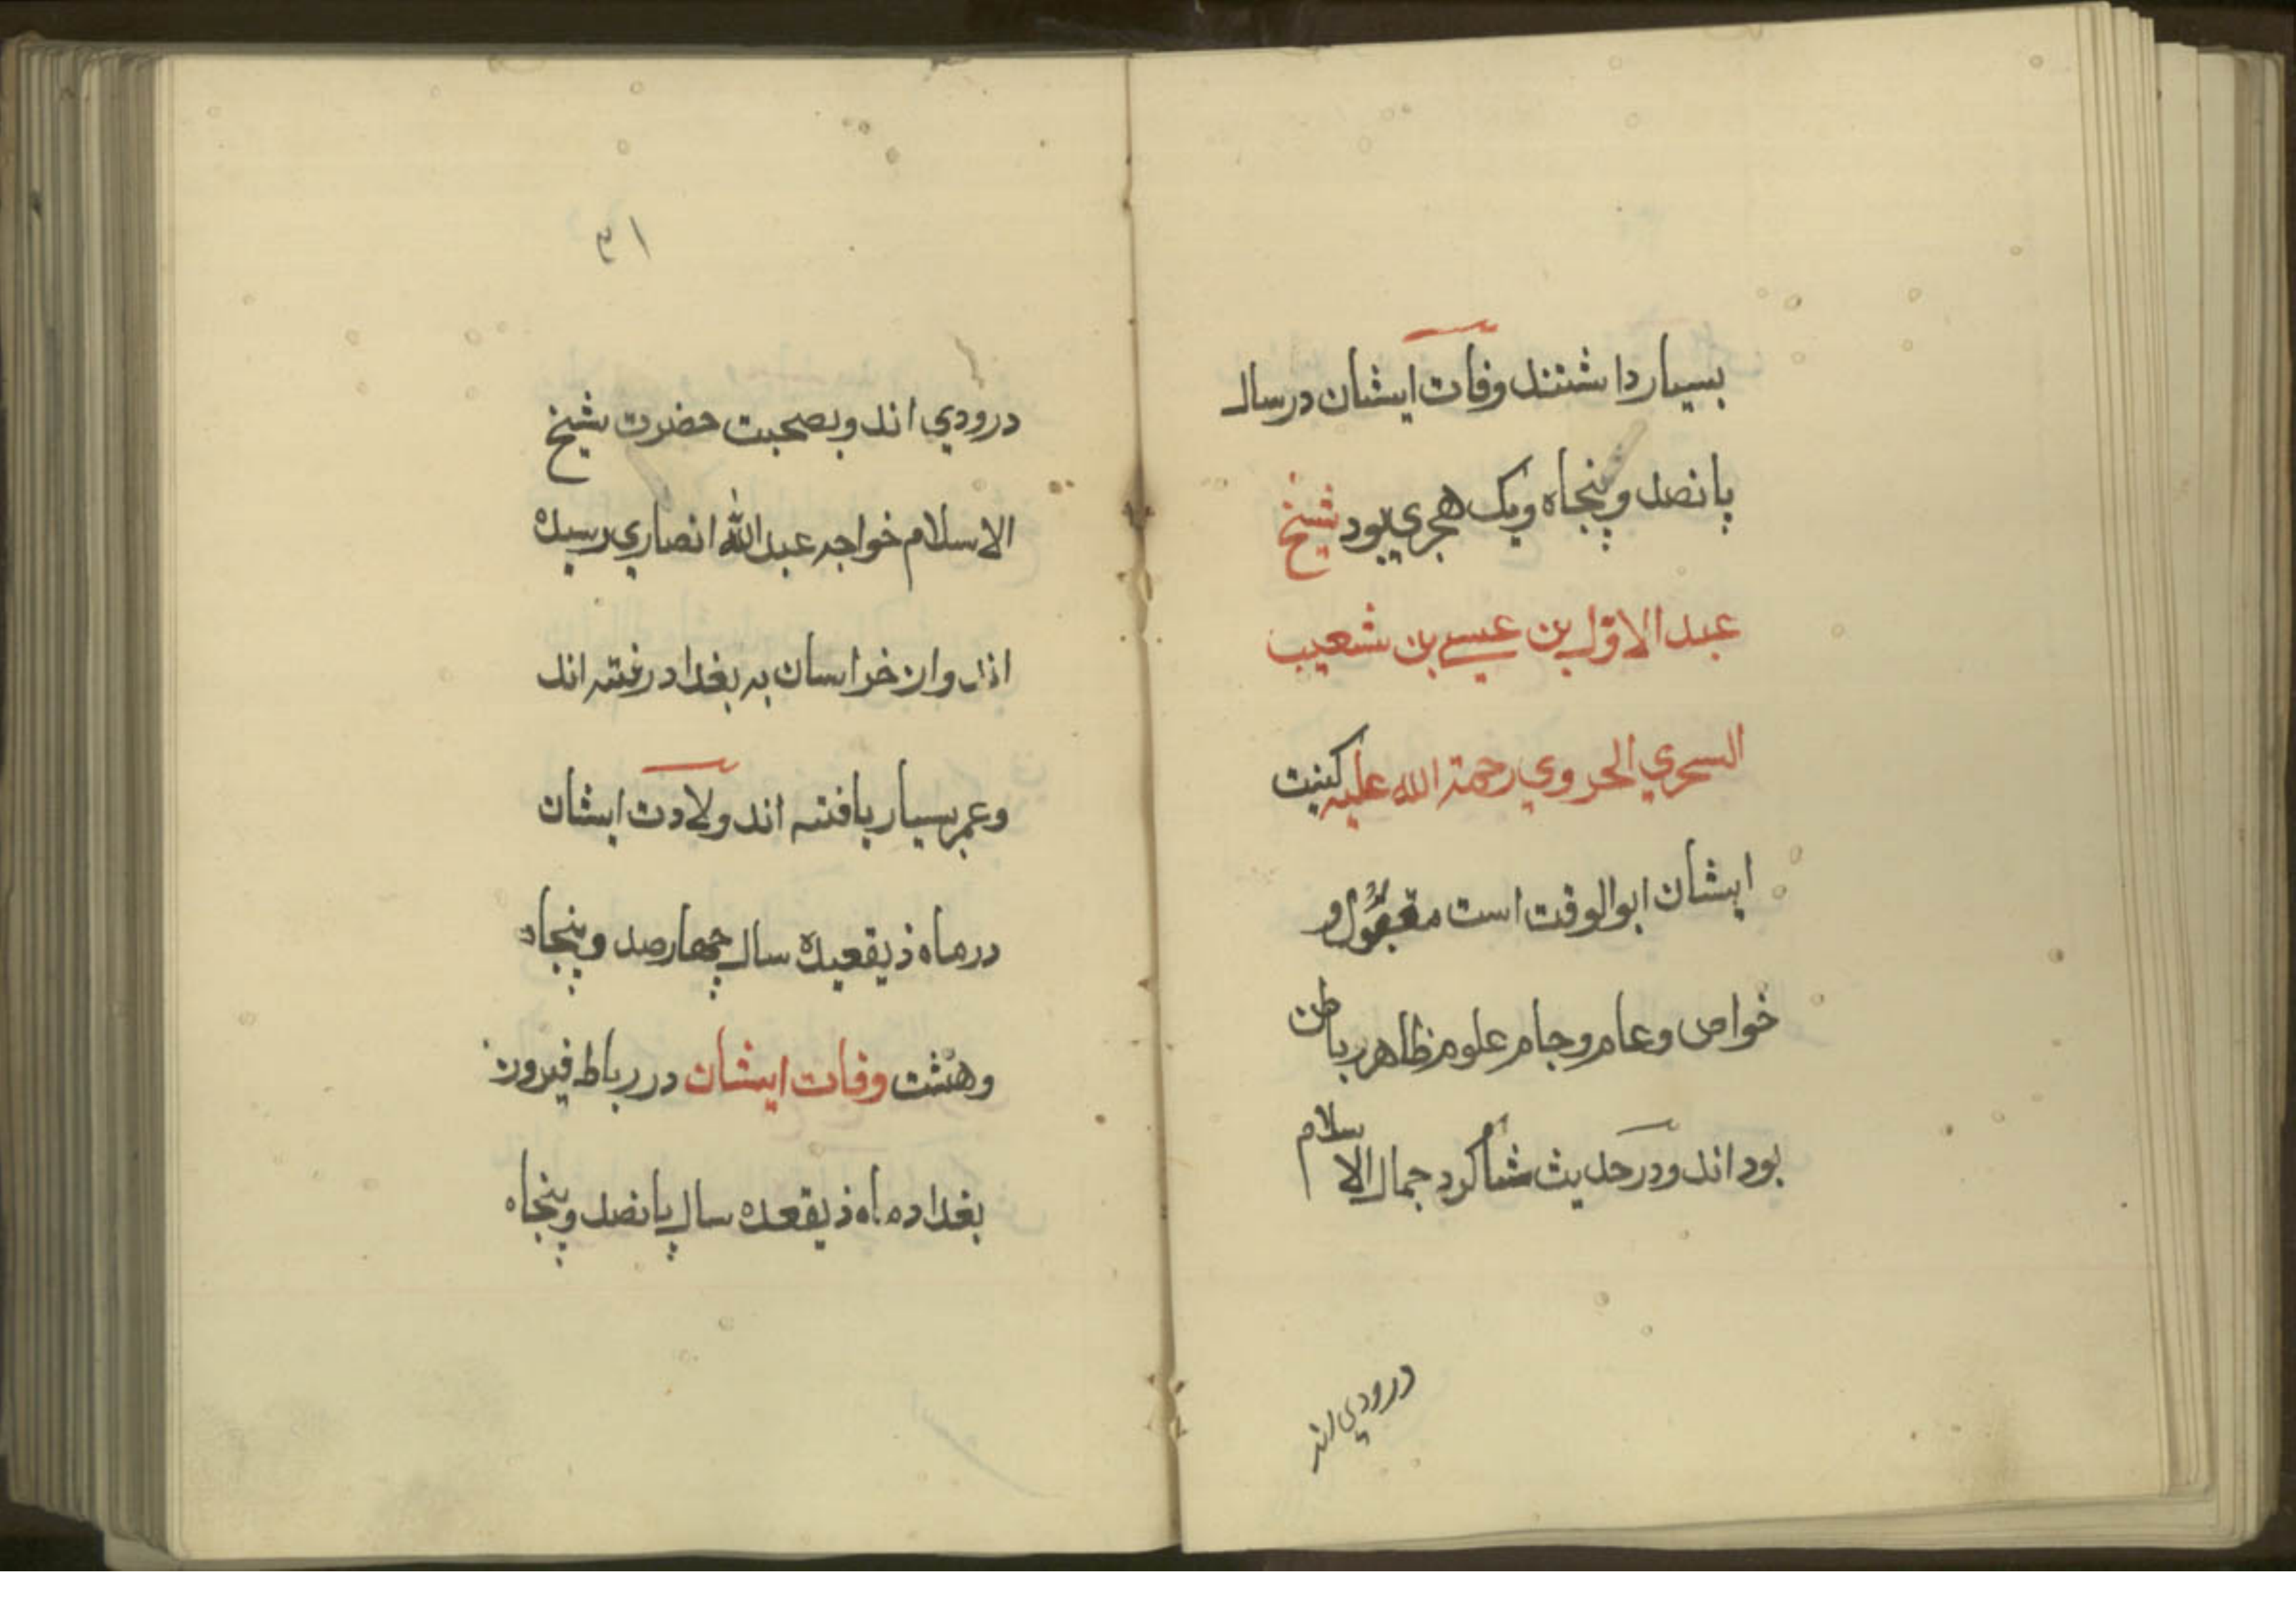 بسیار داشتند وفات ایشان در سال
پانصد و پنجاه ویک هجری بود شیخ
عبد الاوّل بن عیسی بن شعیب
السحري الحروي رحمة الله علیه کنیت
ایشان ابوالوقت است مقبول و
خواص وعام وجام علوم ظاهر باطن
بود اند ودر حدیث شاکرد جمال الاسلام
درودي اند
۳۱
درودي اند وبصحبت حضرت شیخ
الاسلام خواجه عبد الله انصاري رسیده
اند وان خراسان به بغداد رفته اند
وعمر بسیار یافته اند ولادت ایشان
در ماه ذیقعیده سال چهار صد و پنجاه
وهشت وفات ایشان در رباط فیرون
بغداد ماه ذیقعده سال پانصد و پنجاه